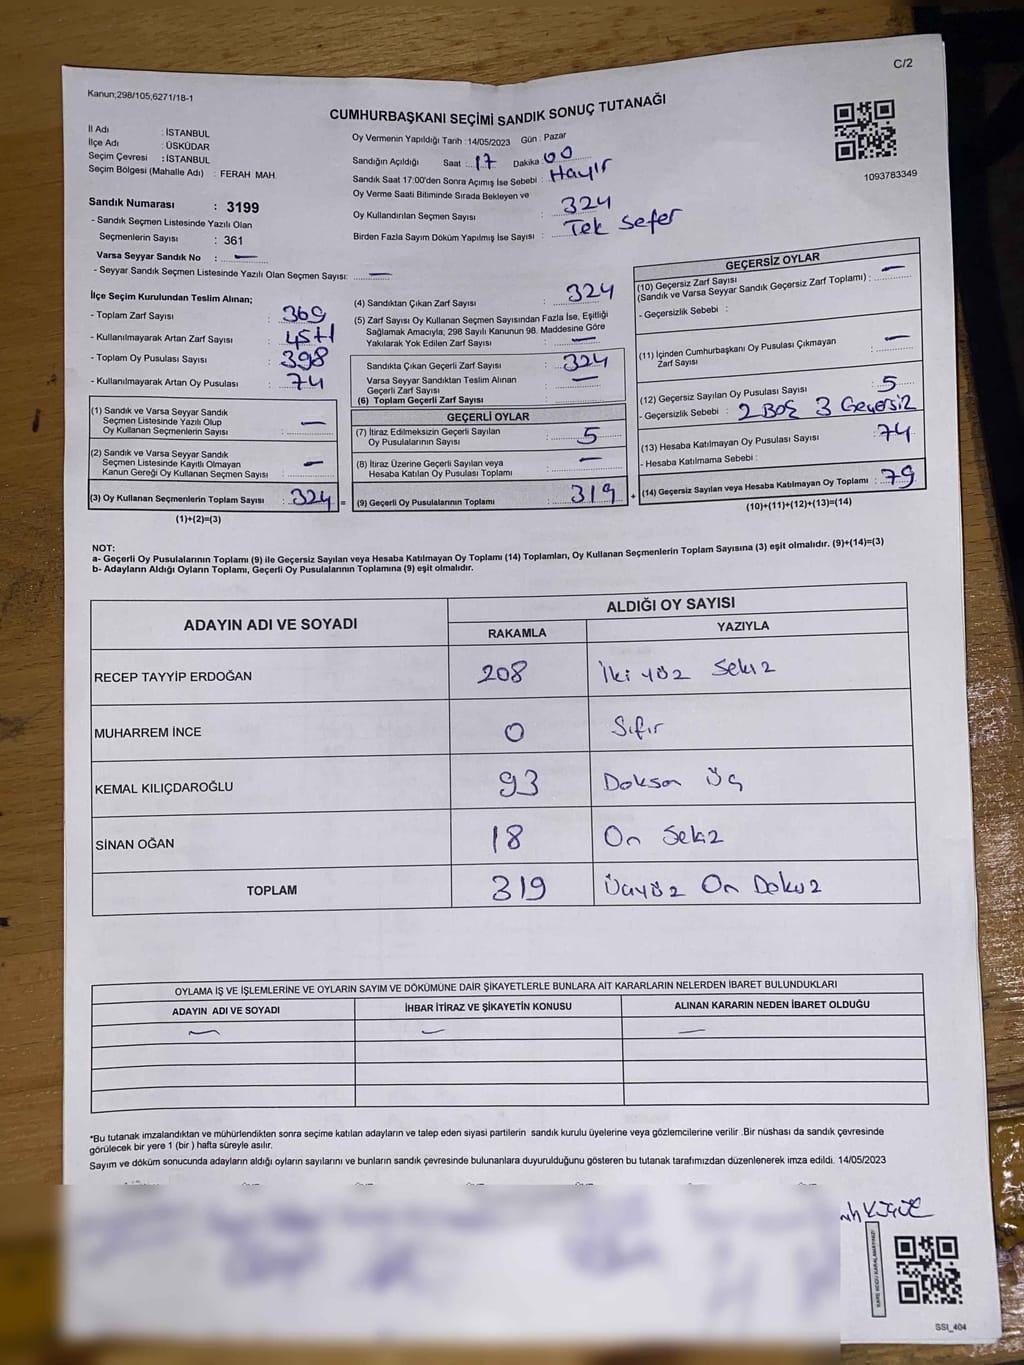 C/2
Kanun;298/105,6271/18-1
CUMHURBAŞKANI SEÇİMİ SANDIK SONUÇ TUTANAĞI
İl Adı : İSTANBUL
İlçe Adı : ÜSKÜDAR
Seçim Çevresi : İSTANBUL
Seçim Bölgesi (Mahalle Adı) : FERAH MAH.
Oy Vermenin Yapıldığı Tarih :14/05/2023 Gün : Pazar
Sandığın Açıldığı Saat :..17 Dakika:00
Sandık Saat 17:00'den Sonra Açımış İse Sebebi : Hayır
Oy Verme Saati Bitiminde Sırada Bekleyen ve
Oy Kullandırılan Seçmen Sayısı : 324
Birden Fazla Sayım Döküm Yapılmış İse Sayısı : Tek Sefer
1093783349
Sandık Numarası : 3199
- Sandık Seçmen Listesinde Yazılı Olan
Seçmenlerin Sayısı : 361
Varsa Seyyar Sandık No : —
- Seyyar Sandık Seçmen Listesinde Yazılı Olan Seçmen Sayısı: —
İlçe Seçim Kurulundan Teslim Alınan;
- Toplam Zarf Sayısı : 369
- Kullanılmayarak Artan Zarf Sayısı : 45+1
- Toplam Oy Pusulası Sayısı : 398
- Kullanılmayarak Artan Oy Pusulası : 74
(1) Sandık ve Varsa Seyyar Sandık
Seçmen Listesinde Yazılı Olup
Oy Kullanan Seçmenlerin Sayısı : —
(2) Sandık ve Varsa Seyyar Sandık
Seçmen Listesinde Kayıtlı Olmayan
Kanun Gereği Oy Kullanan Seçmen Sayısı : —
(3) Oy Kullanan Seçmenlerin Toplam Sayısı : 324 =
(1)+(2)=(3)
(4) Sandıktan Çıkan Zarf Sayısı : 324
(5) Zarf Sayısı Oy Kullanan Seçmen Sayısından Fazla İse, Eşitliği
Sağlamak Amacıyla, 298 Sayılı Kanunun 98. Maddesine Göre
Yakılarak Yok Edilen Zarf Sayısı : —
Sandıkta Çıkan Geçerli Zarf Sayısı : 324
Varsa Seyyar Sandıktan Teslim Alınan
Geçerli Zarf Sayısı : —
(6) Toplam Geçerli Zarf Sayısı :
GEÇERLİ OYLAR
(7) İtiraz Edilmeksizin Geçerli Sayılan
Oy Pusulalarının Sayısı : 5
(8) İtiraz Üzerine Geçerli Sayılan veya
Hesaba Katılan Oy Pusulası Toplamı : —
(9) Geçerli Oy Pusulalarının Toplamı : 319 +
GEÇERSİZ OYLAR
(10) Geçersiz Zarf Sayısı
(Sandık ve Varsa Seyyar Sandık Geçersiz Zarf Toplamı) : —
- Geçersizlik Sebebi :
(11) İçinden Cumhurbaşkanı Oy Pusulası Çıkmayan
Zarf Sayısı : —
(12) Geçersiz Sayılan Oy Pusulası Sayısı : 5
- Geçersizlik Sebebi : 2 Boş 3 Geçersiz
(13) Hesaba Katılmayan Oy Pusulası Sayısı : 74
- Hesaba Katılmama Sebebi :
(14) Geçersiz Sayılan veya Hesaba Katılmayan Oy Toplamı : 79
(10)+(11)+(12)+(13)=(14)
NOT:
a- Geçerli Oy Pusulalarının Toplamı (9) ile Geçersiz Sayılan veya Hesaba Katılmayan Oy Toplamı (14) Toplamları, Oy Kullanan Seçmenlerin Toplam Sayısına (3) eşit olmalıdır. (9)+(14)=(3)
b- Adayların Aldığı Oyların Toplamı, Geçerli Oy Pusulalarının Toplamına (9) eşit olmalıdır.
ADAYIN ADI VE SOYADI ALDIĞI OY SAYISI
RAKAMLA YAZIYLA
RECEP TAYYİP ERDOĞAN 208 İki yüz Sekiz
MUHARREM İNCE 0 Sıfır
KEMAL KILIÇDAROĞLU 93 Doksan Üç
SİNAN OĞAN 18 On Sekiz
TOPLAM 319 Üçyüz On Dokuz
OYLAMA İŞ VE İŞLEMLERİNE VE OYLARIN SAYIM VE DÖKÜMÜNE DAİR ŞİKAYETLERLE BUNLARA AİT KARARLARIN NELERDEN İBARET BULUNDUKLARI
ADAYIN ADI VE SOYADI İHBAR İTİRAZ VE ŞİKAYETİN KONUSU ALINAN KARARIN NEDEN İBARET OLDUĞU
— — —
*Bu tutanak imzalandıktan ve mühürlendikten sonra seçime katılan adayların ve talep eden siyasi partilerin sandık kurulu üyelerine veya gözlemcilerine verilir .Bir nüshası da sandık çevresinde
görülecek bir yere 1 (bir ) hafta süreyle asılır.
Sayım ve döküm sonucunda adayların aldığı oyların sayılarını ve bunların sandık çevresinde bulunanlara duyurulduğunu gösteren bu tutanak tarafımızdan düzenlenerek imza edildi. 14/05/2023
KARE KODU KARALAMAYINIZ!
SSI_404